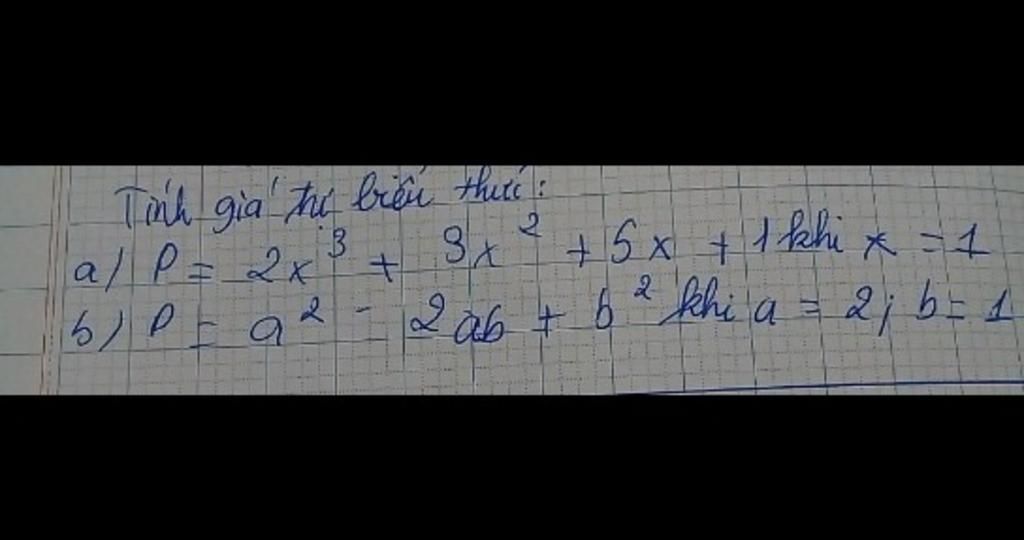 Tính giá trị biểu thức:
a) P = 2x³ + 3x² + 5x + 1 khi x = 1
b) P = a² - 2ab + b² khi a = 2; b = 1